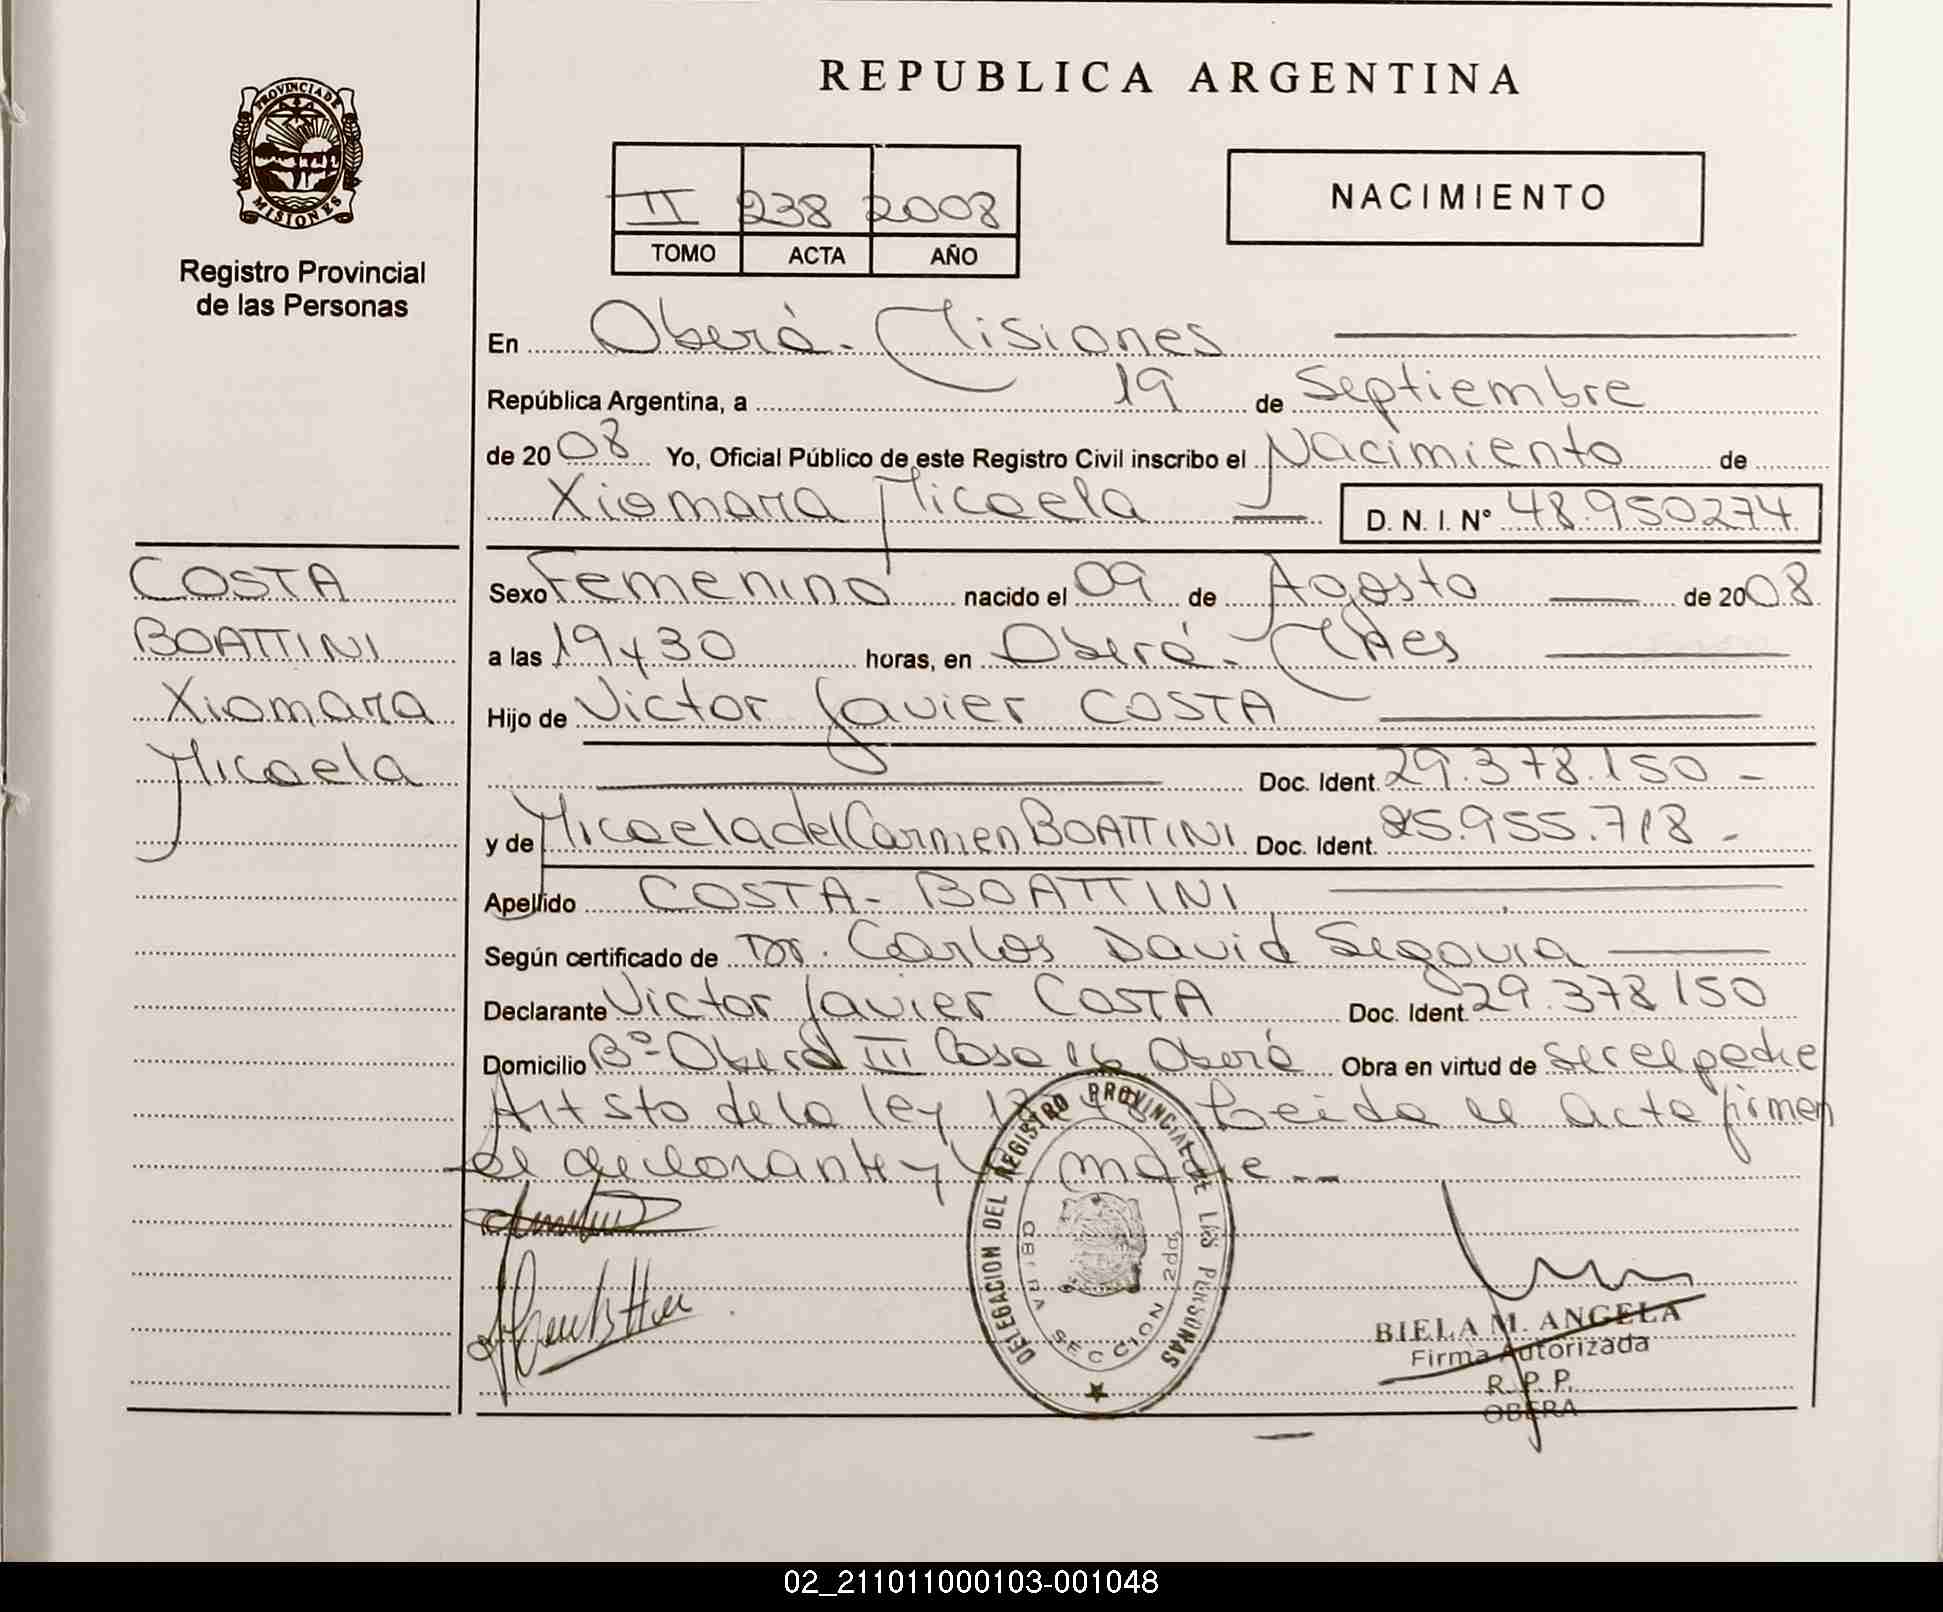 REPUBLICA ARGENTINA
PROVINCIA DE
MISIONES
Registro Provincial
de las Personas
II 238 2008
TOMO ACTA AÑO
NACIMIENTO
En Oberá - Misiones
República Argentina, a 19 de Septiembre
de 2008 Yo, Oficial Público de este Registro Civil inscribo el Nacimiento de
Xiomara Micaela D. N. I. N° 48.950274
COSTA
BOATTINI
Xiomara
Micaela
Sexo Femenino nacido el 09 de Agosto de 2008
a las 19 y 30 horas, en Oberá - Mnes
Hijo de Victor Javier COSTA
Doc. Ident. 29.378.150 -
y de Micaela del Carmen BOATTINI Doc. Ident. 25.955.718 -
Apellido COSTA - BOATTINI
Según certificado de Dr. Carlos David Segovia
Declarante Victor Javier COSTA Doc. Ident. 29.378150
Domicilio B° Oberá III Casa 16 Oberá Obra en virtud de
Art 5to de la ley Leida el acta firman
el declarante y madre --
DELEGACION DEL REGISTRO PROVINCIAL DE LAS PERSONAS
OBERA SECCION 2da
BIELA M. ANGELA
Firma Autorizada
R. P. P.
OBERA
02_211011000103-001048